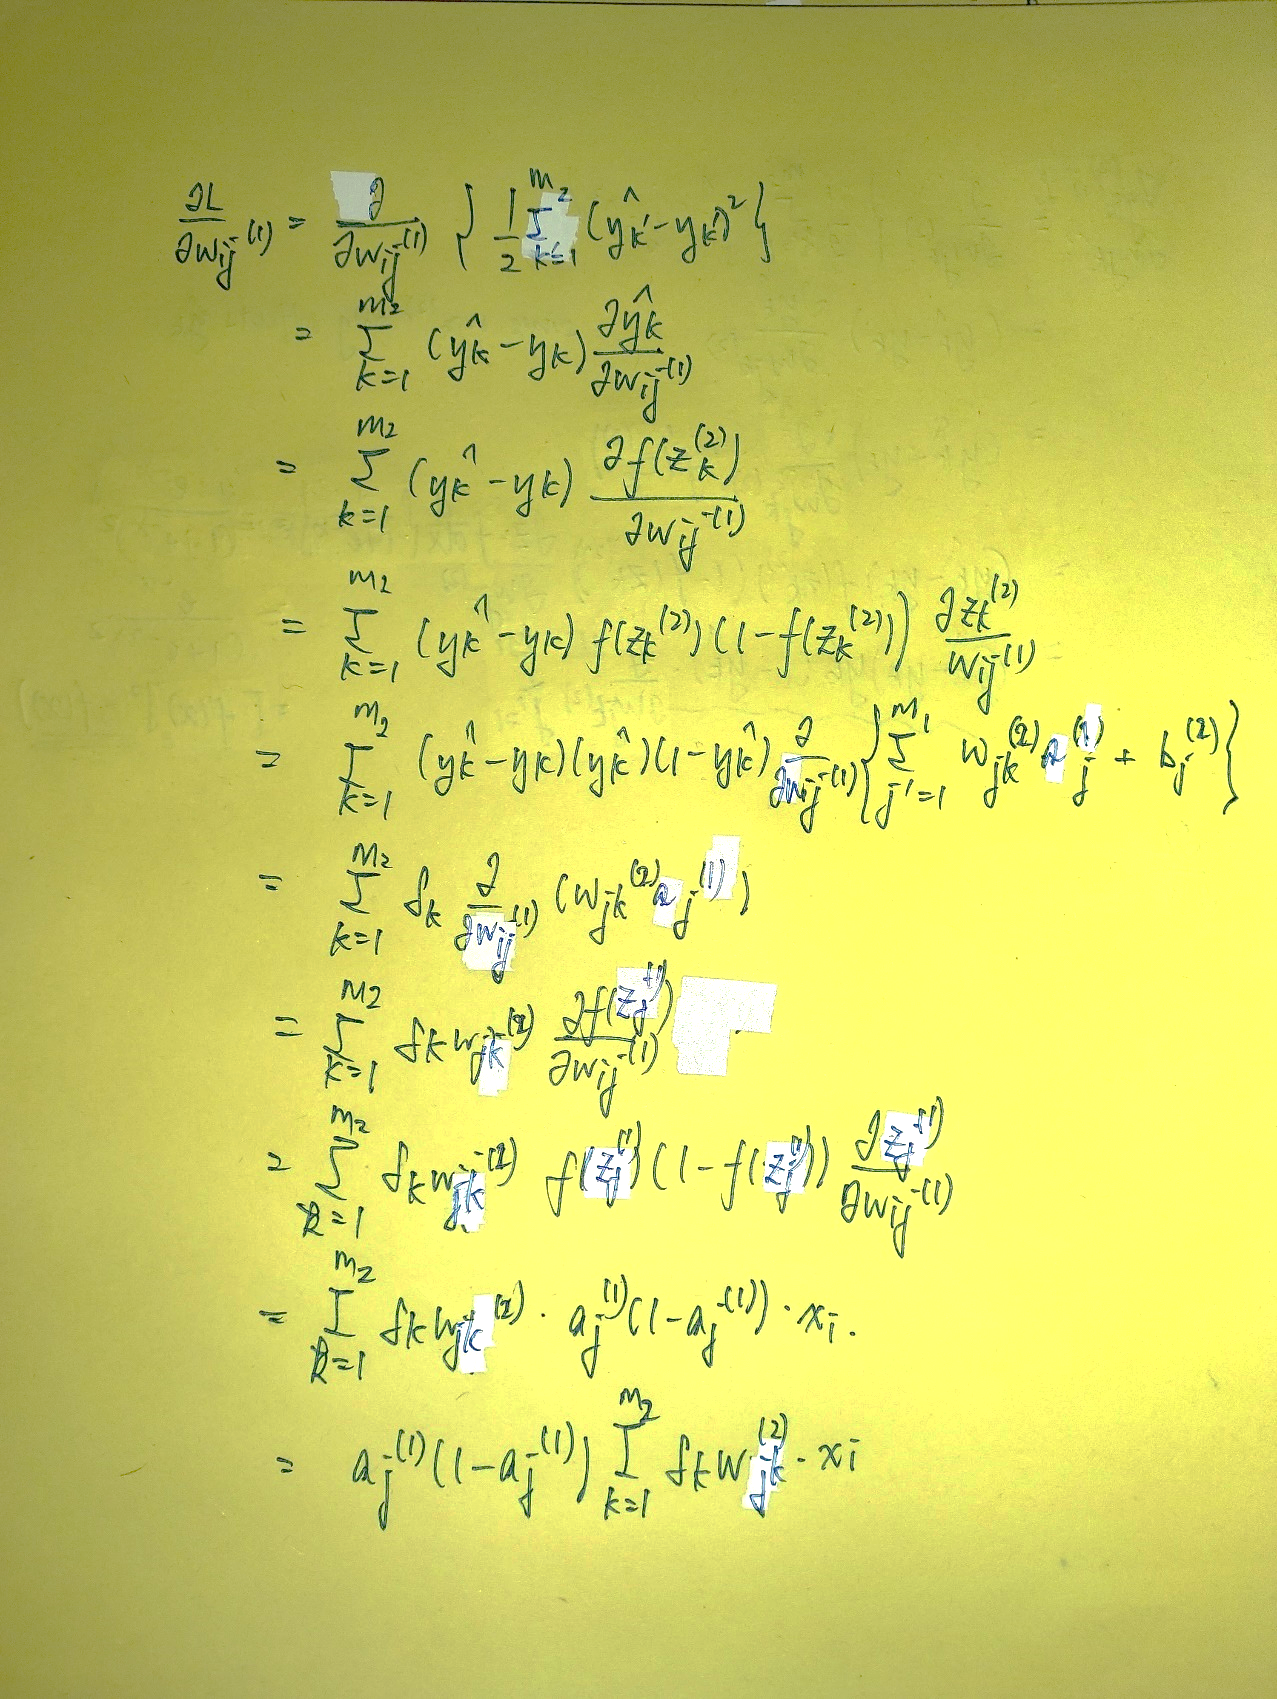 ∂L/∂wij^(1) = ∂/∂wij^(1) { 1/2 Σ_{k=1}^{m2} (ŷk - yk)^2 }
= Σ_{k=1}^{m2} (ŷk - yk) ∂ŷk/∂wij^(1)
= Σ_{k=1}^{m2} (ŷk - yk) ∂f(zk^(2))/∂wij^(1)
= Σ_{k=1}^{m2} (ŷk - yk) f(zk^(2)) (1 - f(zk^(2))) ∂zk^(2)/wij^(1)
= Σ_{k=1}^{m2} (ŷk - yk)(ŷk)(1 - ŷk) ∂/∂wij^(1) { Σ_{j'=1}^{m1} wjk^(2) aj^(1) + bj^(2) }
= Σ_{k=1}^{m2} δk ∂/∂wij^(1) (wjk^(2) aj^(1))
= Σ_{k=1}^{m2} δk wjk^(2) ∂f(zj^(1))/∂wij^(1)
= Σ_{k=1}^{m2} δk wjk^(2) f(zj^(1)) (1 - f(zj^(1))) ∂zj^(1)/∂wij^(1)
= Σ_{k=1}^{m2} δk wjk^(2) · aj^(1) (1 - aj^(1)) · xi.
= aj^(1) (1 - aj^(1)) Σ_{k=1}^{m2} δk wjk^(2) · xi